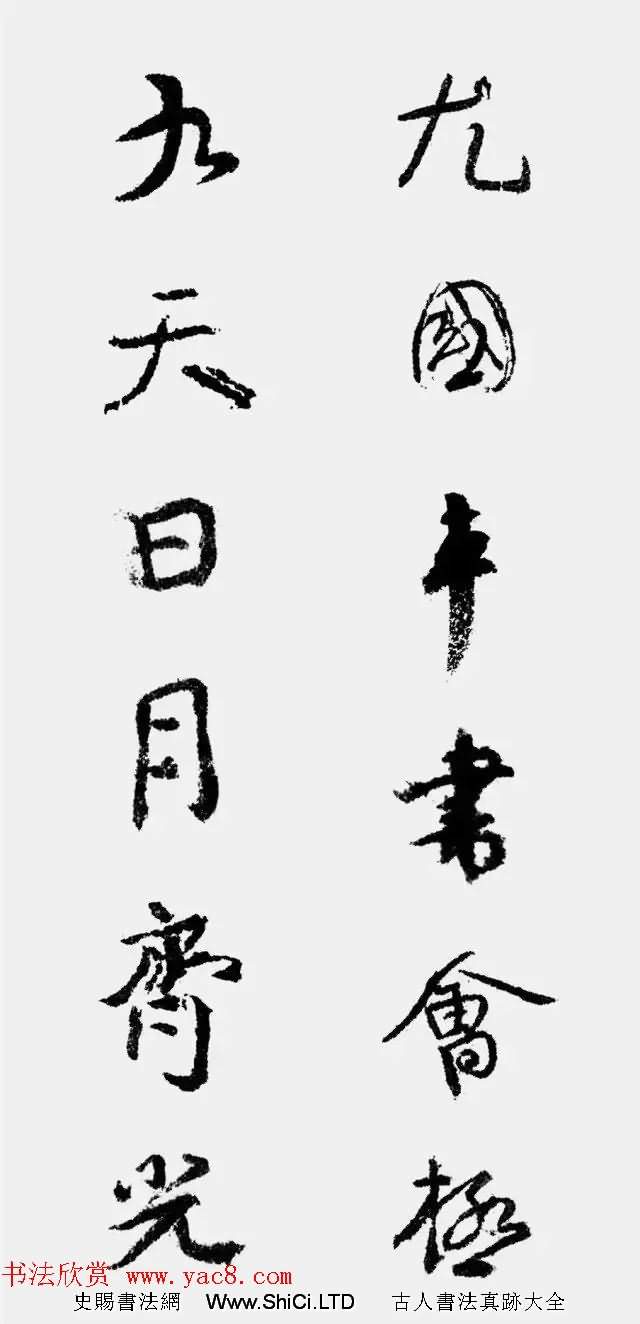 尤國車書會極
九天日月齊光
书法欣赏 www.yac8.com
史賜書法網 Www.ShiCi.LTD 古人書法真跡大全